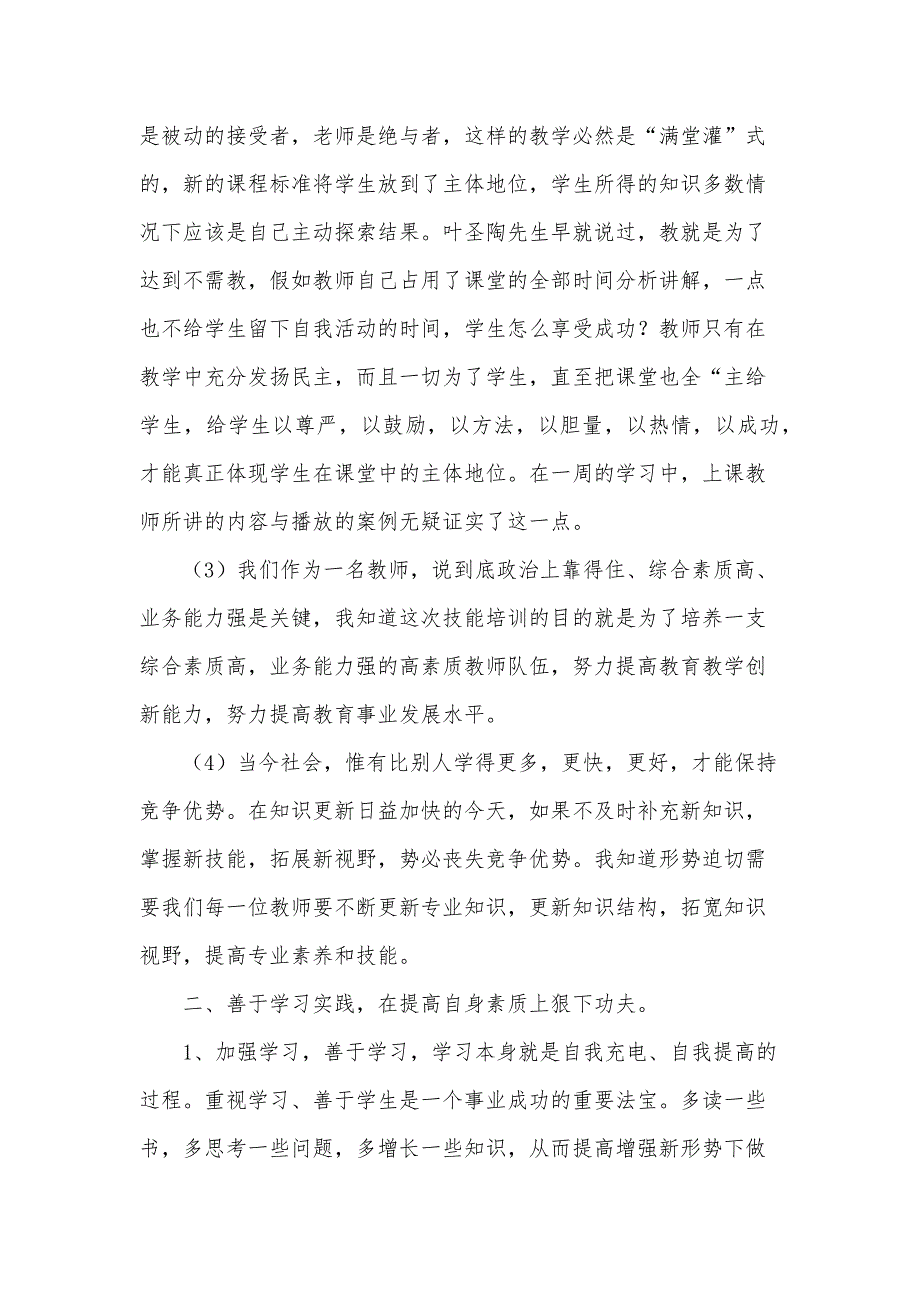 是被动的接受者，老师是绝与者，这样的教学必然是“满堂灌”式
的，新的课程标准将学生放到了主体地位，学生所得的知识多数情
况下应该是自己主动探索结果。叶圣陶先生早就说过，教就是为了
达到不需教，假如教师自己占用了课堂的全部时间分析讲解，一点
也不给学生留下自我活动的时间，学生怎么享受成功？教师只有在
教学中充分发扬民主，而且一切为了学生，直至把课堂也全“主给
学生，给学生以尊严，以鼓励，以方法，以胆量，以热情，以成功，
才能真正体现学生在课堂中的主体地位。在一周的学习中，上课教
师所讲的内容与播放的案例无疑证实了这一点。
（3）我们作为一名教师，说到底政治上靠得住、综合素质高、
业务能力强是关键，我知道这次技能培训的目的就是为了培养一支
综合素质高，业务能力强的高素质教师队伍，努力提高教育教学创
新能力，努力提高教育事业发展水平。
（4）当今社会，惟有比别人学得更多，更快，更好，才能保持
竞争优势。在知识更新日益加快的今天，如果不及时补充新知识，
掌握新技能，拓展新视野，势必丧失竞争优势。我知道形势迫切需
要我们每一位教师要不断更新专业知识，更新知识结构，拓宽知识
视野，提高专业素养和技能。
二、善于学习实践，在提高自身素质上狠下功夫。
1、加强学习，善于学习，学习本身就是自我充电、自我提高的
过程。重视学习、善于学生是一个事业成功的重要法宝。多读一些
书，多思考一些问题，多增长一些知识，从而提高增强新形势下做